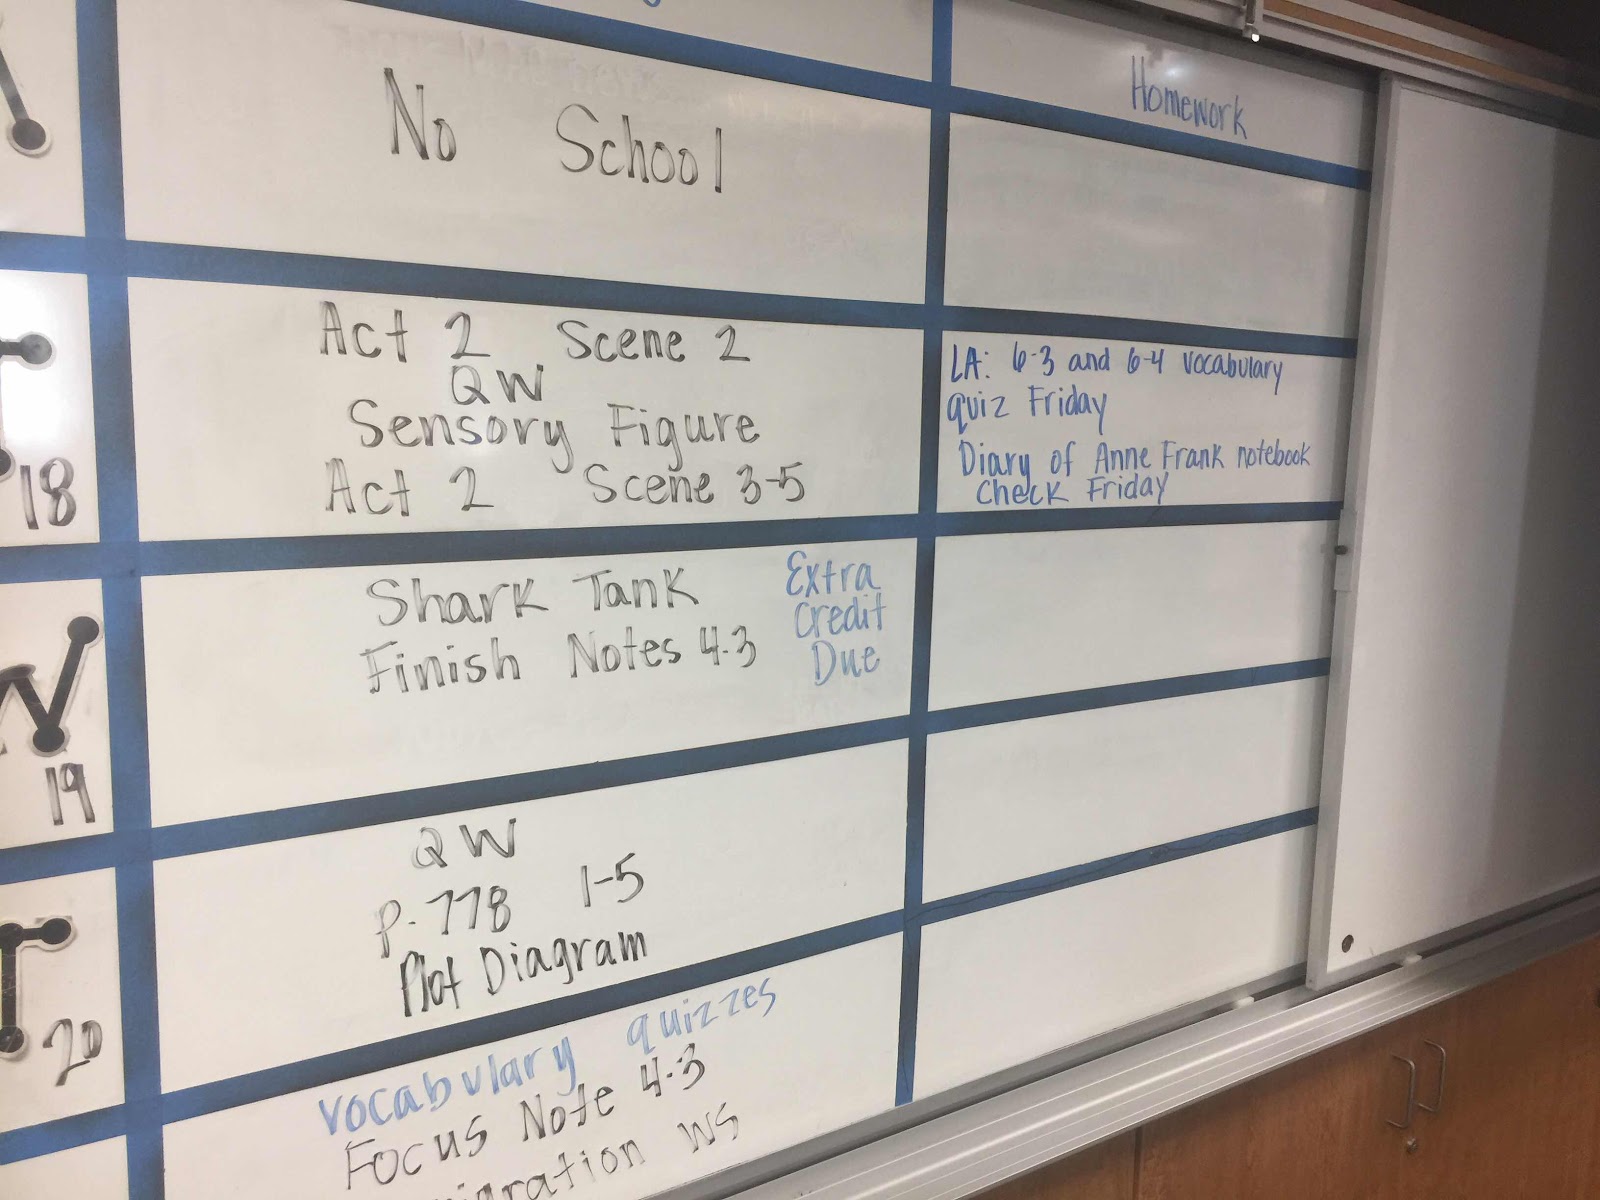 Homework
No School
T
18
Act 2 Scene 2
QW
Sensory Figure
Act 2 Scene 3-5
LA: 6-3 and 6-4 vocabulary
quiz Friday
Diary of Anne Frank notebook
Check Friday
W
19
Shark Tank
Finish Notes 4.3
Extra
Credit
Due
T
20
QW
P. 778 1-5
Plot Diagram
vocabulary quizzes
Focus Note 4.3
WS